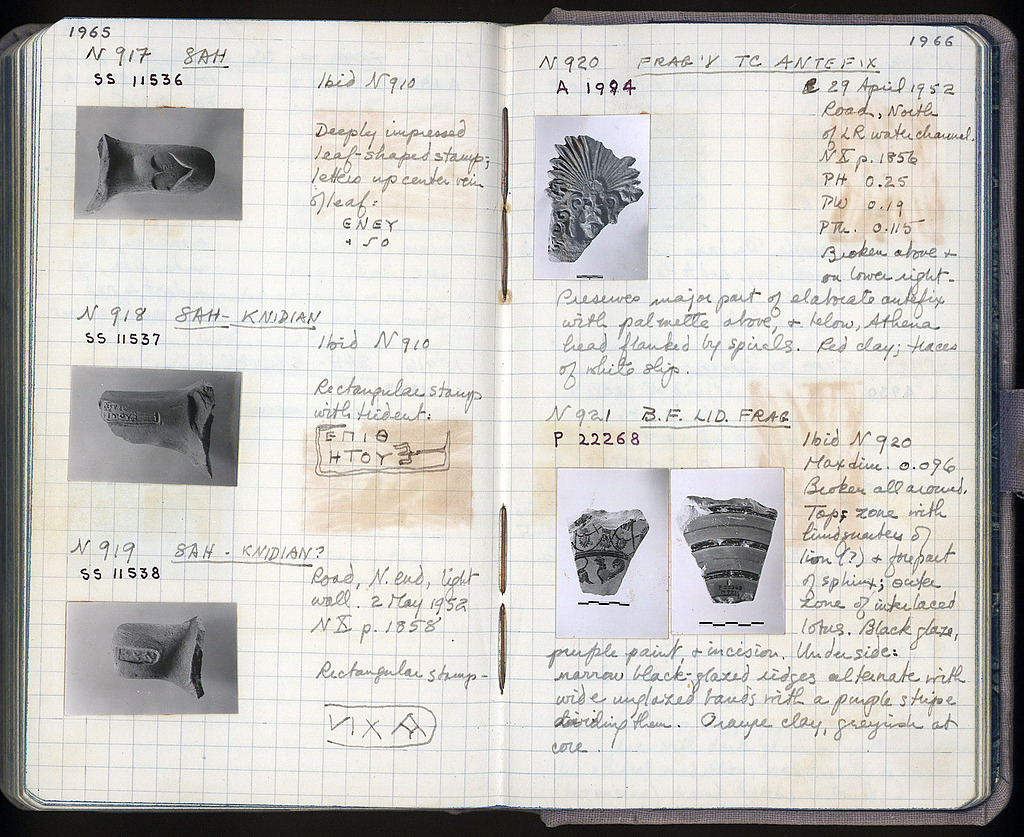 1965
N 917 SAH
SS 11536
Ibid N 910
Deeply impressed
leaf-shaped stamp;
letters up center vein
of leaf:
ENEY
+ 50
N 918 SAH - KNIDIAN
SS 11537
Ibid N 910
Rectangular stamp
with trident:
ΕΠΙΘ
ΗΤΟΥ
N 919 SAH - KNIDIAN?
SS 11538
Road, N. end, light
wall. 2 May 1952
N X p. 1858
Rectangular stamp -
1966
N 920 FRAG'Y TC ANTEFIX
A 1994
29 April 1952
Road, North
of LR water channel.
N X p. 1856
PH 0.25
PW 0.19
PTh. 0.115
Broken above +
on lower right.
Preserves major part of elaborate antefix
with palmette above, + below, Athena
head flanked by spirals. Red clay; traces
of white slip.
N 921 B.F. LID. FRAG
P 22268
Ibid N 920
Max dim. 0.096
Broken all around.
Top; zone with
hindquarters of
lion (?) + forepart
of sphinx; outer
zone of interlaced
lotus. Black glaze,
purple paint + incision. Underside:
narrow black-glazed ridges alternate with
wide unglazed bands with a purple stripe
dividing them. Orange clay, greyish at
core.